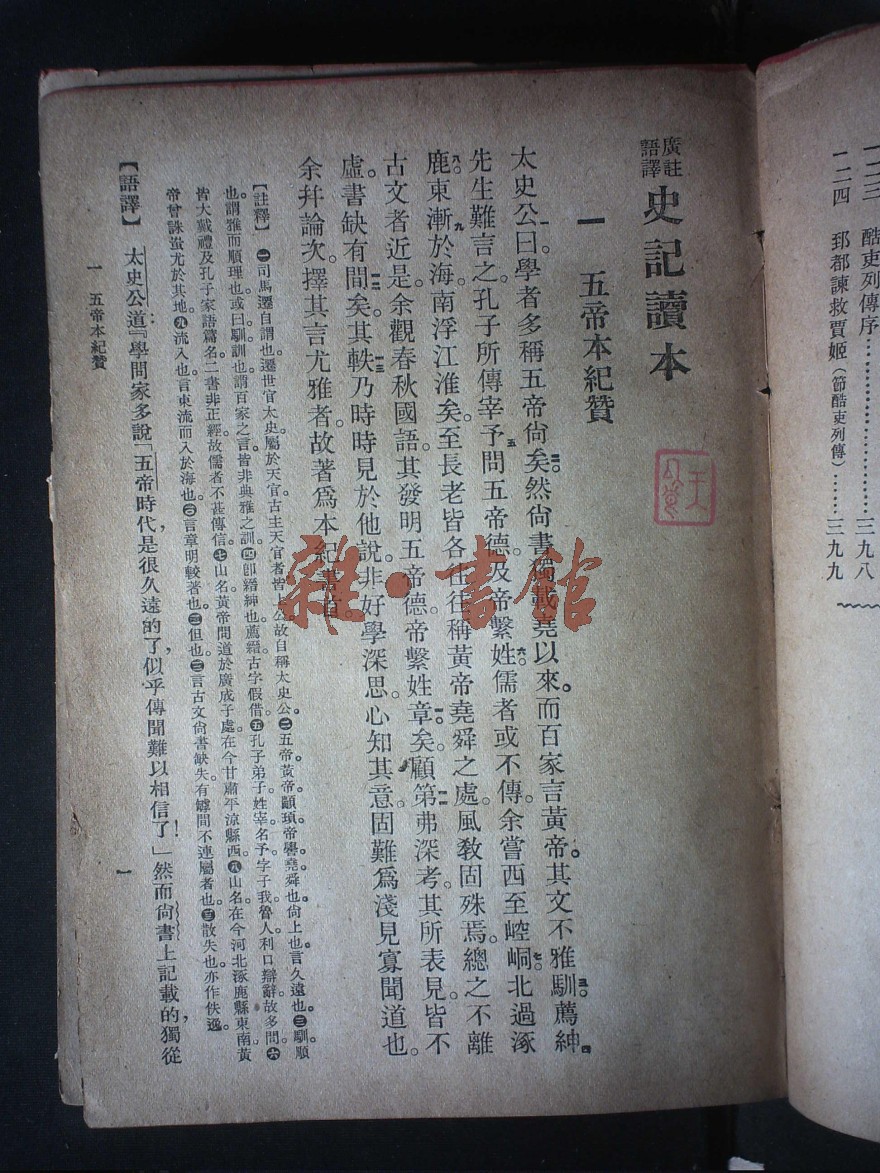 一二三 酷吏列傳序………………三九八
一二四 郅都諫救賈姬(節酷吏列傳)……三九九
廣註語譯 史記讀本
一 五帝本紀贊
太史公曰。一學者多稱五帝尙矣。二然尙書獨載堯以來。而百家言黃帝。其文不雅馴。三薦紳四
先生難言之。孔子所傳宰予五問五帝德。及帝繫姓。六儒者或不傳。余嘗西至崆峒。七北過涿
鹿。八東漸九於海。南浮江淮矣。至長老皆各往往稱黃帝堯舜之處。風敎固殊焉。總之不離
古文者近是。余觀春秋國語。其發明五帝德。帝繫姓章矣。一〇顧第一一弗深考。其所表見皆不
虛。書缺有間矣。一二其軼一三乃時時見於他說。非好學深思。心知其意。固難爲淺見寡聞道也。
余幷論次。擇其言尤雅者。故著爲本紀書首。
【註釋】㊀司馬遷自謂也。遷世官太史。屬於天官。古主天官者皆上公。故自稱太史公。㊁五帝。黃帝。顓頊。帝嚳。堯舜也。尙上也。言久遠也。㊂馴。順
也。謂雅而順理也。或曰馴訓也。謂百家之言。皆非典雅之訓。㊃卽縉紳也。薦縉古字假借。㊄孔子弟子。姓宰名予。字子我。魯人。利口辯辭。故多問。㊅
皆大戴禮及孔子家語篇名。二書非正經。故儒者不甚傳信。㊆山名。黃帝問道於廣成子處。在今甘肅平涼縣西。㊇山名。在今河北涿鹿縣東南。黃
帝曾誅蚩尤於其地。㊈流入也。言東流而入於海也。㊉言章明較著也。⑪但也。⑫言古文尙書缺失。有罅間不連屬者也。⑬散失也。亦作佚逸。
【語譯】 太史公道:『學問家多說「五帝時代,是很久遠的了,似乎傳聞難以相信了!」然而尙書上記載的,獨從
一 五帝本紀贊
一
雜·書館